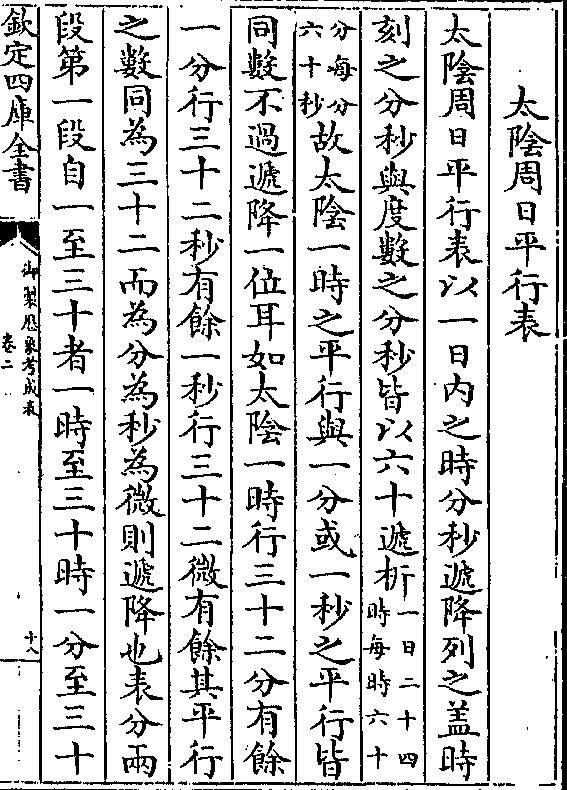 太陰周日平行表
太陰周日平行表以一日内之時分秒遞降列之盖時
刻之分秒與度數之分秒皆以六十遞析一日二十四時每時六十
分每分六十秒故太陰一時之平行與一分或一秒之平行皆
同數不過遞降一位耳如太陰一時行三十二分有餘
一分行三十二秒有餘一秒行三十二微有餘其平行
之數同為三十二而為分為秒為微則遞降也表分兩
段第一段自一至三十者一時至三十時一分至三十
欽定四庫全書
御製厯象考成表
卷二
十八